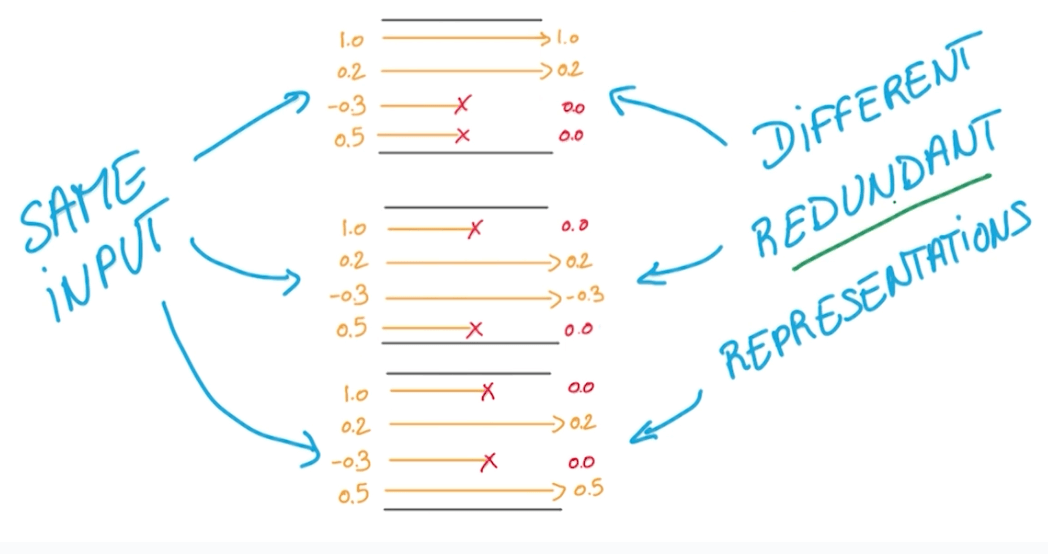 1.0 1.0
0.2 0.2
-0.3 0.0
0.5 0.0
SAME
iNPUT
1.0 0.0
0.2 0.2
-0.3 -0.3
0.5 0.0
1.0 0.0
0.2 0.2
-0.3 0.0
0.5 0.5
DiFFERENT
REDUNDANT
REPRESENTATiONS